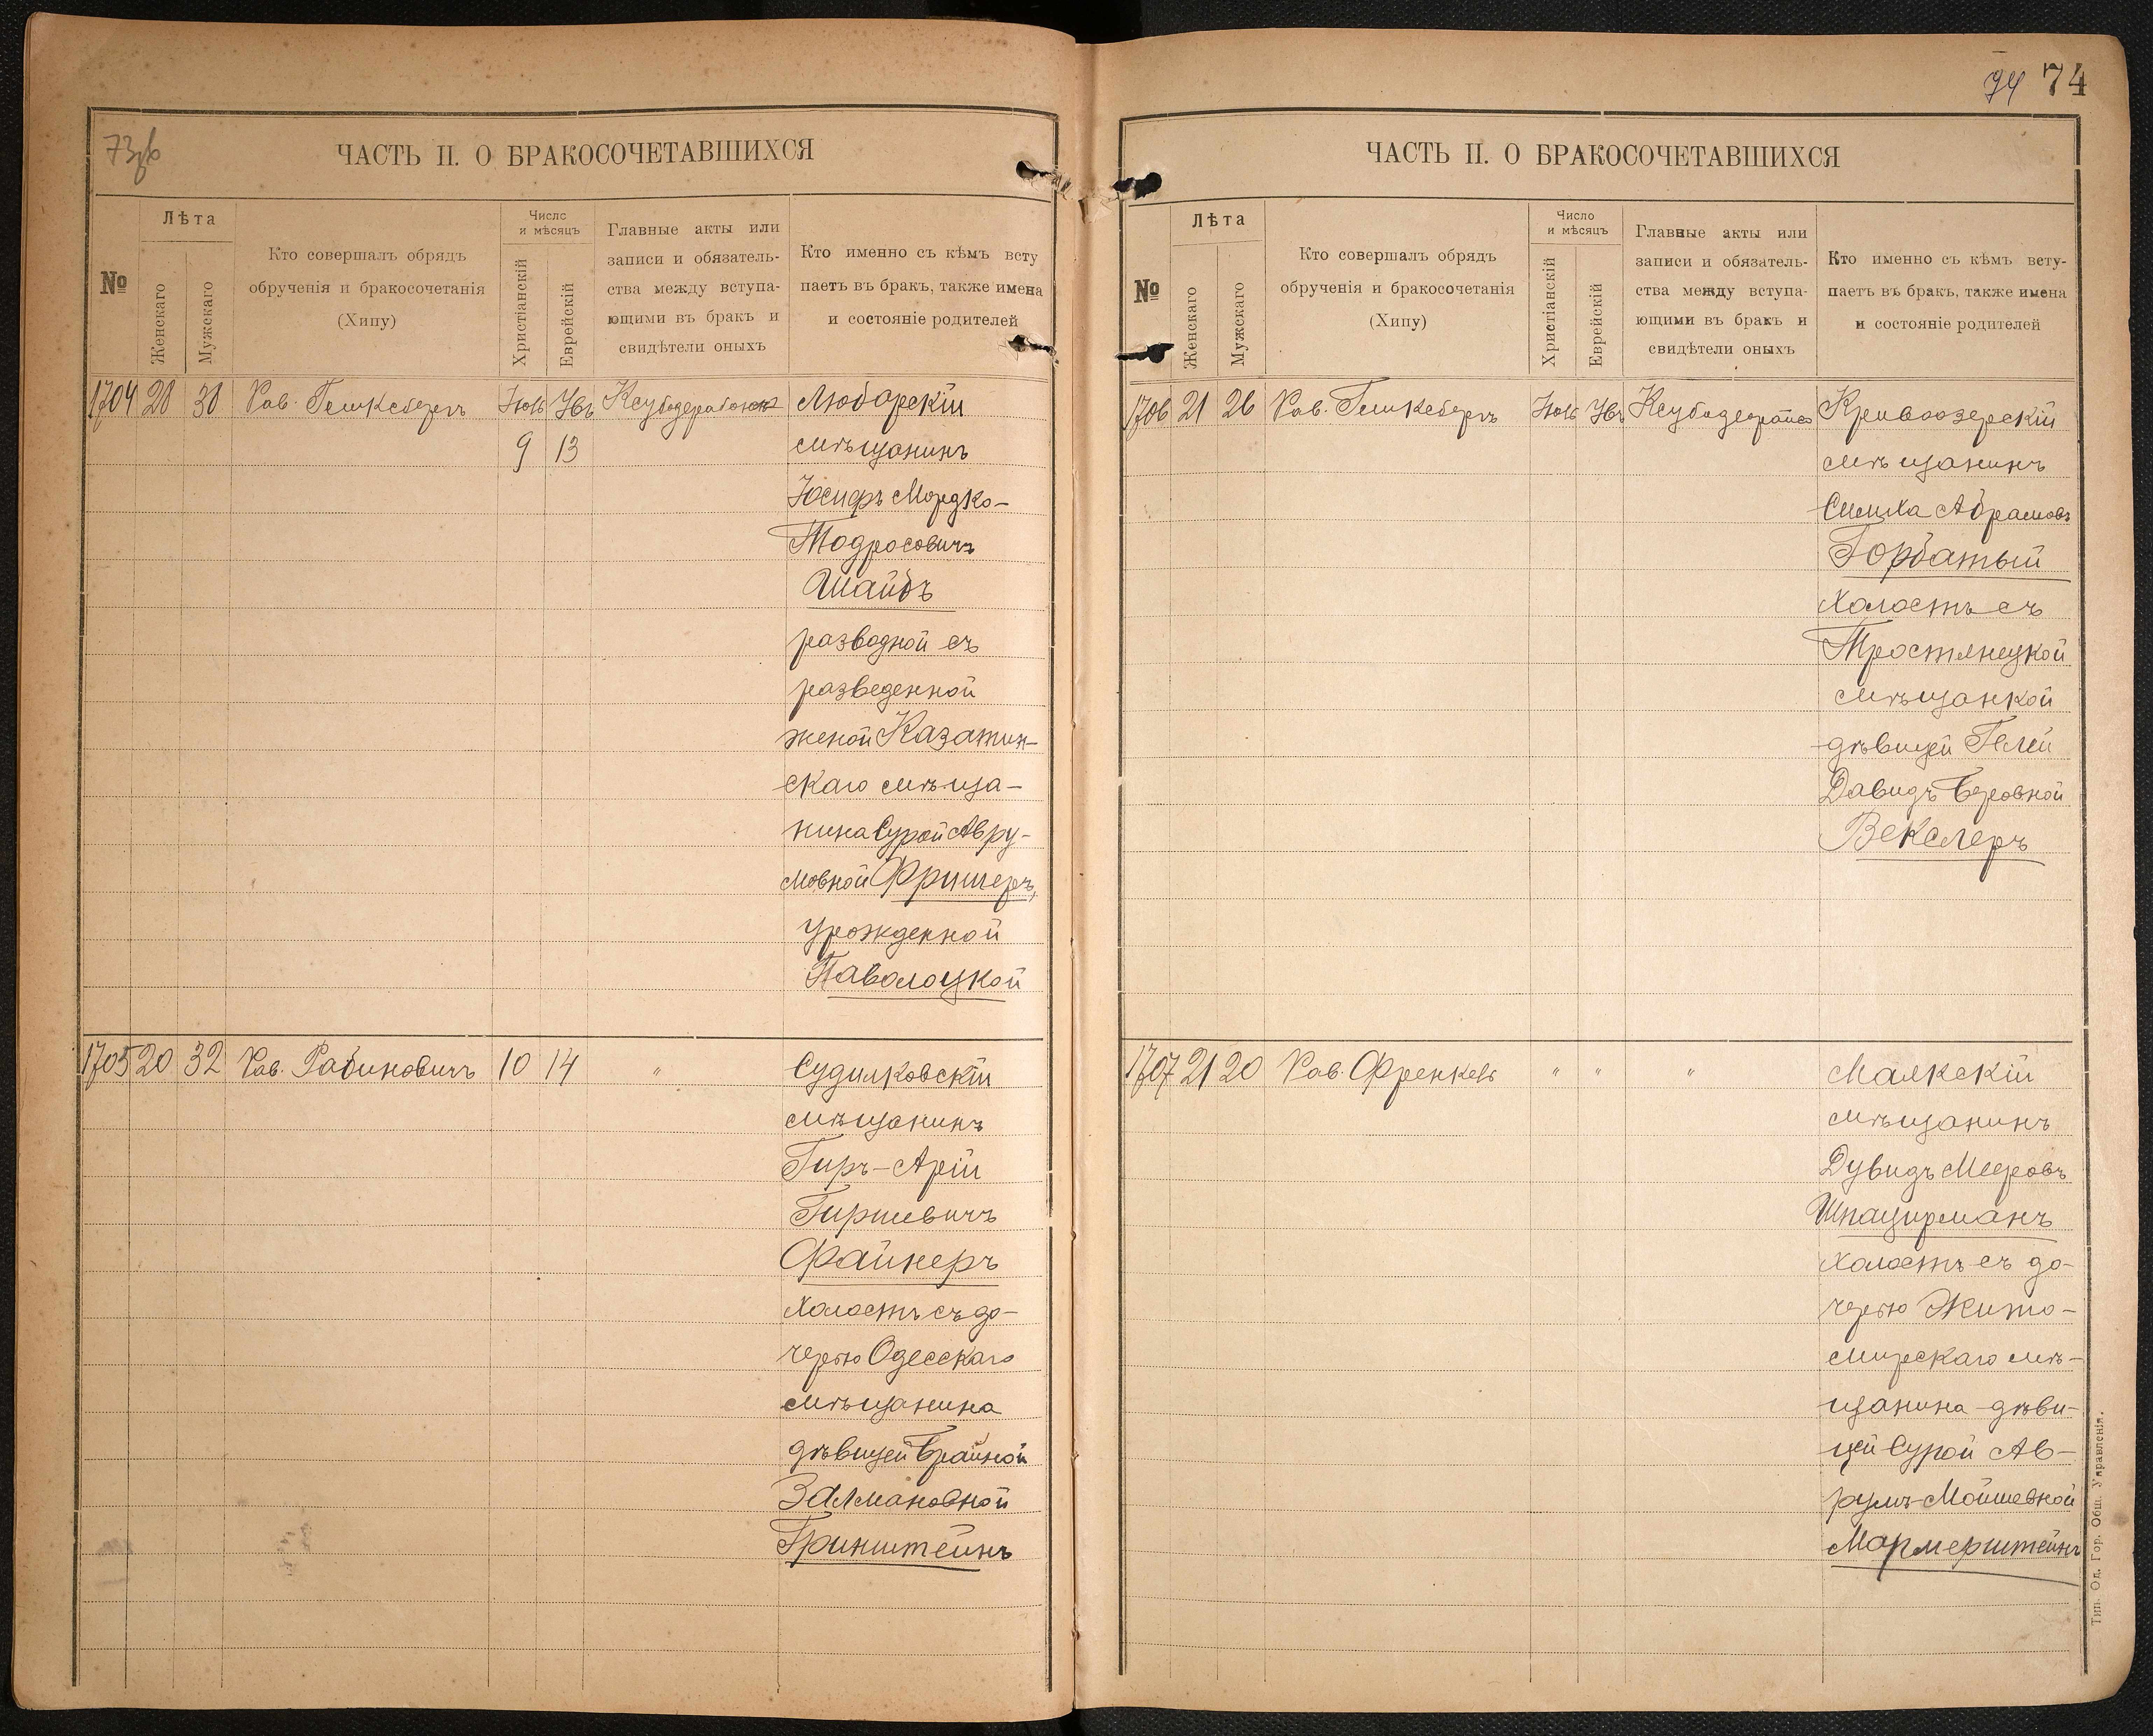 73об
ЧАСТЬ II. О БРАКОСОЧЕТАВШИХСЯ
№
Лѣта
Женскаго
Мужскаго
Кто совершалъ обрядъ
обрученія и бракосочетанія
(Хипу)
Число
и мѣсяцъ
Христіанскій
Еврейскій
Главные акты или
записи и обязатель-
ства между вступа-
ющими въ бракъ и
свидѣтели оныхъ
Кто именно съ кѣмъ всту
паетъ въ бракъ, также имена
и состояніе родителей
1704 28 38 Рав. Іюль
9 13
Любарскій
мѣщанинъ
Іосифъ Мордко-
Тодросовичъ
Шайдъ
разводной съ
разведенной
женой Казатин-
скаго мѣща-
нина Сурой Авру-
мовной Фришеръ,
урожденной
Паволоцкой
1705 20 32 Рав. Рабиновичъ 10 14 "
Судилковскій
мѣщанинъ
Гиръ-Арій
Гиршевичъ
Файнеръ
холостъ съ до-
черью Одесскаго
мѣщанина
дѣвицей Брайной
Залмановной
Гринштейнъ
74 74
ЧАСТЬ II. О БРАКОСОЧЕТАВШИХСЯ
№
Лѣта
Женскаго
Мужскаго
Кто совершалъ обрядъ
обрученія и бракосочетанія
(Хипу)
Число
и мѣсяцъ
Христіанскій
Еврейскій
Главные акты или
записи и обязатель-
ства между вступа-
ющими въ бракъ и
свидѣтели оныхъ
Кто именно съ кѣмъ всту-
паетъ въ бракъ, также имена
и состояніе родителей
1706 21 26 Рав. Іюль
Кривоозерскій
мѣщанинъ
Симха Абрамовъ
Горбатый
холостъ съ
Тростянецкой
мѣщанкой
дѣвицей Гелей
Давидъ Беровной
Векслеръ
1707 21 20 Рав. Френкель " " "
Маякскій
мѣщанинъ
Дувидъ Мееровъ
Шпацирманъ
холостъ съ до-
черью Жито-
мирскаго мѣ-
щанина дѣви-
цей Сурой Ав-
румъ-Мойшевной
Мармерштейнъ
Тип. Од. Гор. Общ. Управленія.